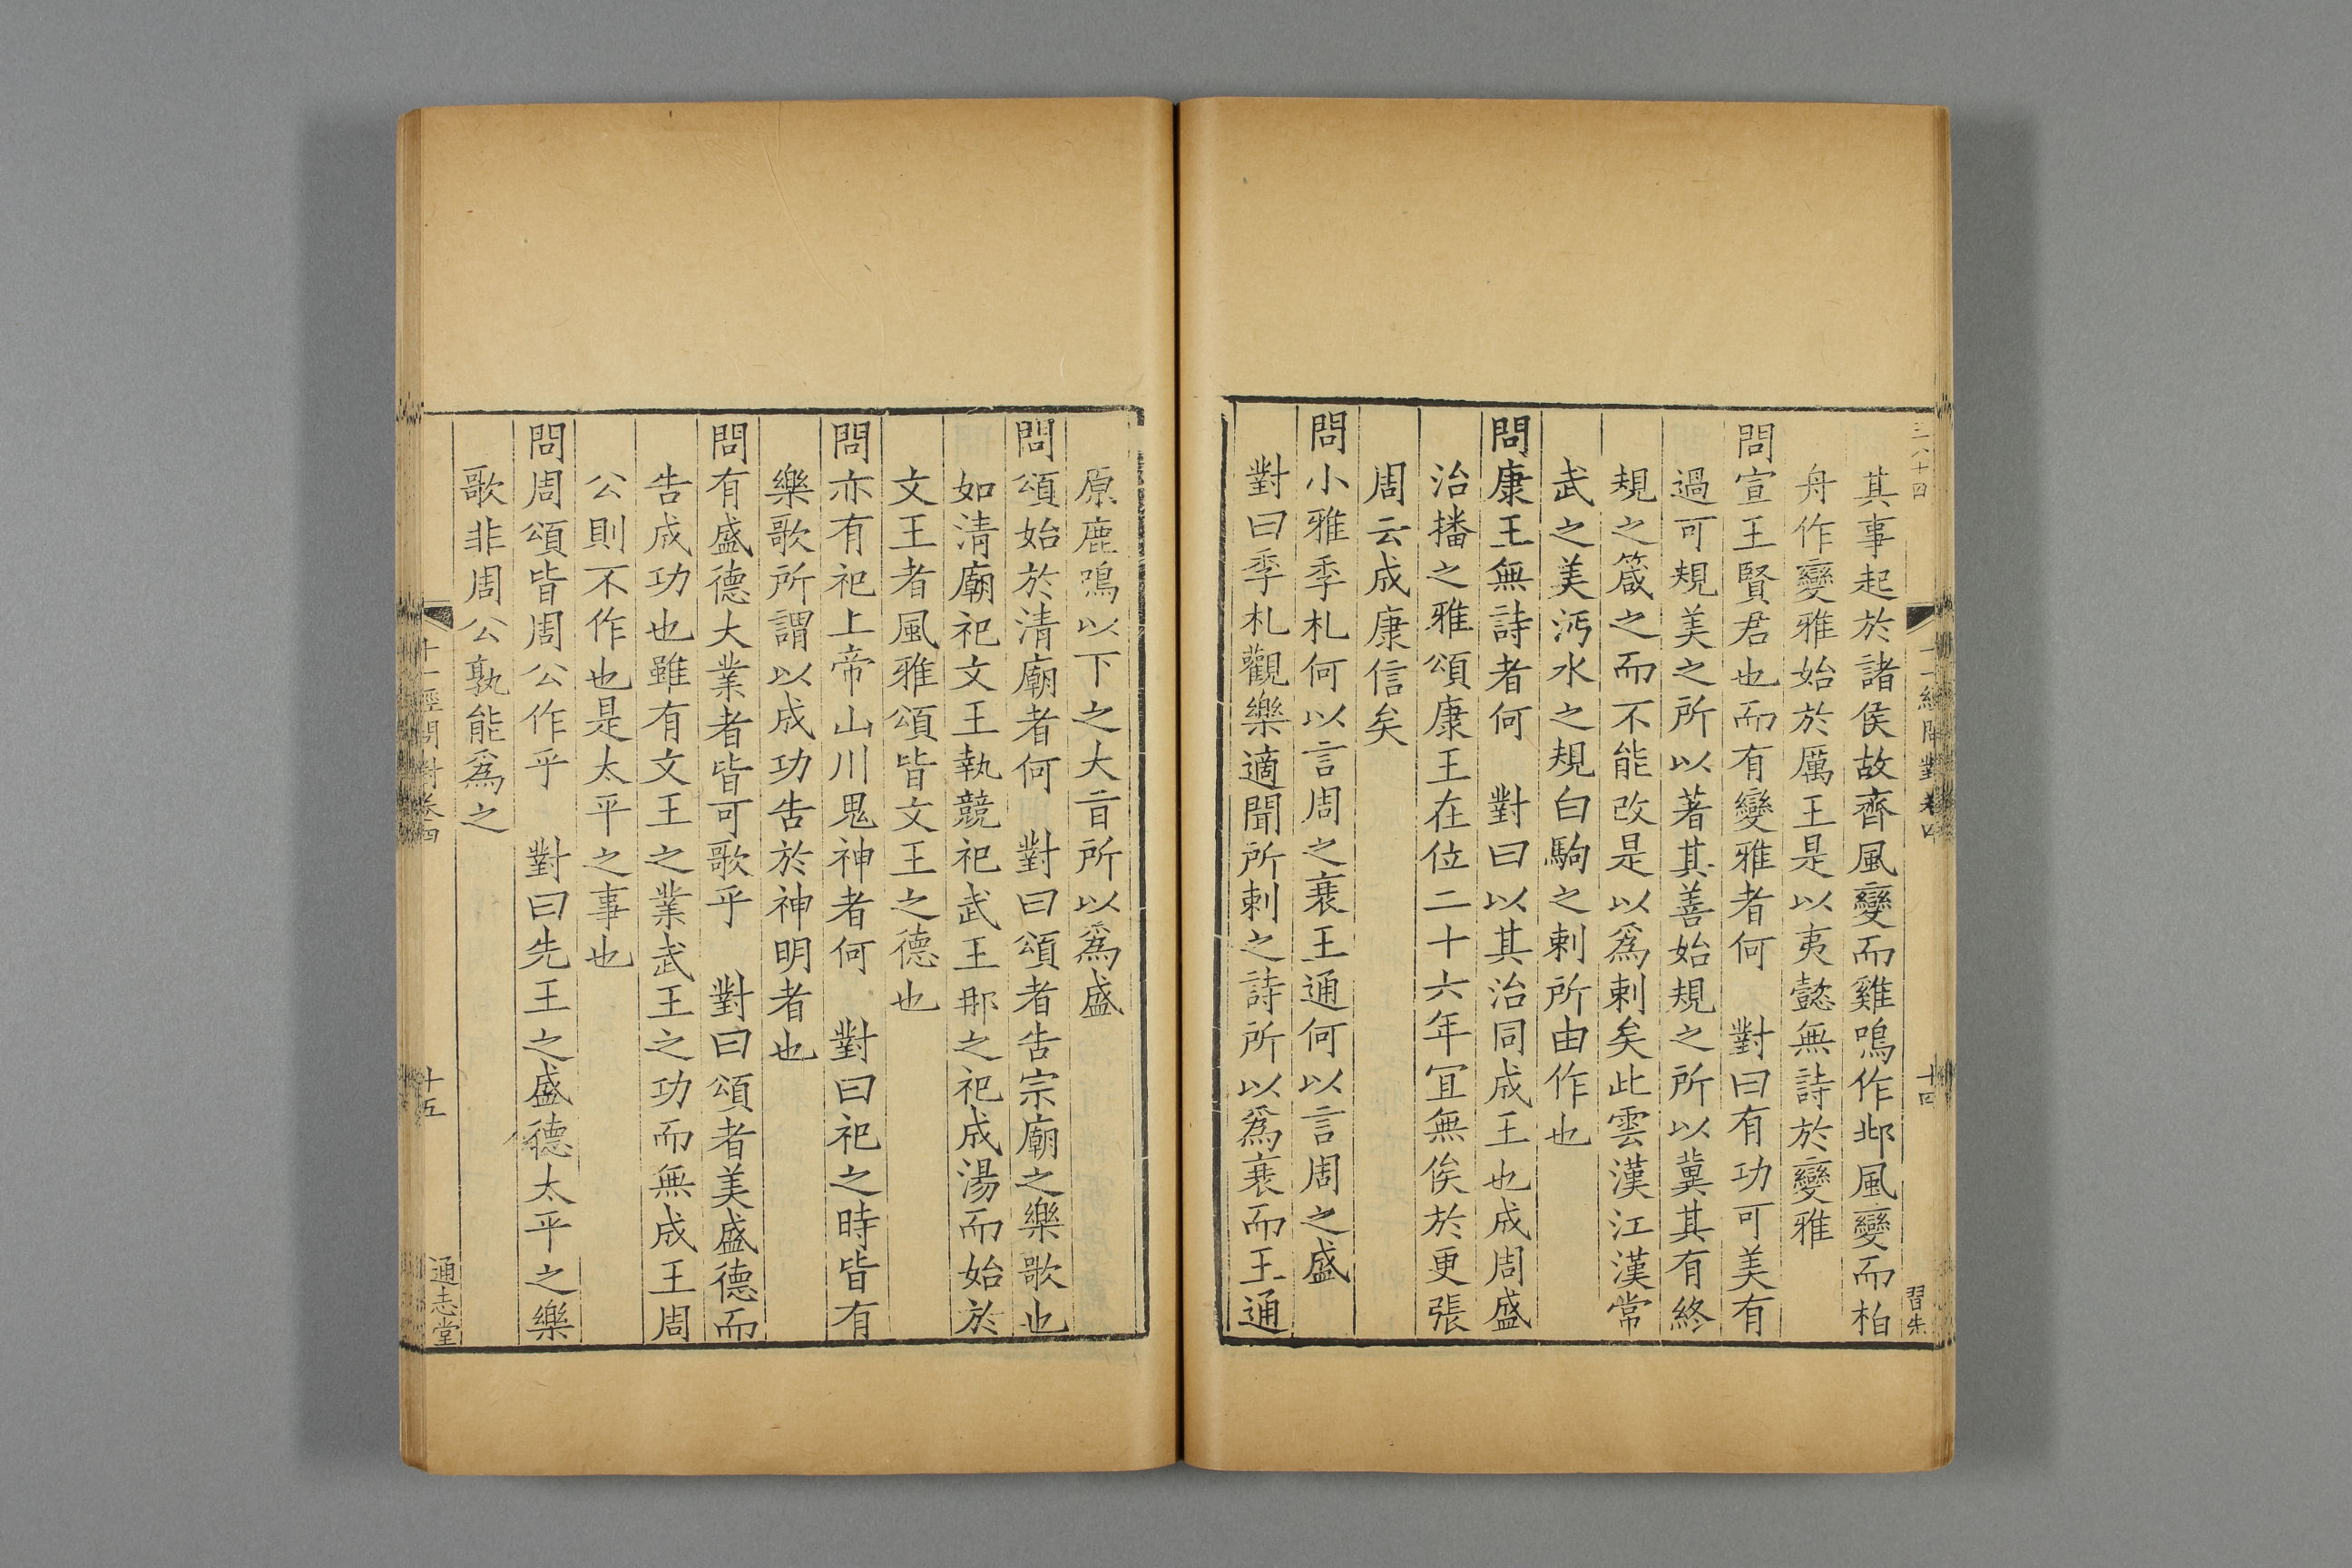 其事起於諸侯故齊風變而雞鳴作邶風變而柏
舟作變雅始於厲王是以夷懿無詩於變雅
問宣王賢君也而有變雅者何　對曰有功可美有
過可規美之所以著其善始規之所以冀其有終
規之箴之而不能改是以爲刺矣此雲漢江漢常
武之美沔水之規白駒之刺所由作也
問康王無詩者何　對曰以其治同成王也成周盛
治播之雅頌康王在位二十六年冝無俟於更張
周云成康信矣
問小雅季札何以言周之衰王通何以言周之盛
對曰季札觀樂適聞所刺之詩所以爲衰而王通
十四
習朱
原鹿鳴以下之大㫖所以爲盛
問頌始於清廟者何　對曰頌者告宗廟之樂歌也
如清廟祀文王執競祀武王那之祀成湯而始於
文王者風雅頌皆文王之德也
問亦有祀上帝山川鬼神者何　對曰祀之時皆有
樂歌所謂以成功告於神明者也
問有盛德大業者皆可歌乎　對曰頌者美盛德而
告成功也雖有文王之業武王之功而無成王周
公則不作也是太平之事也
問周頌皆周公作乎　對曰先王之盛德太平之樂
歌非周公孰能爲之
十一經問對卷四
十五
通志堂